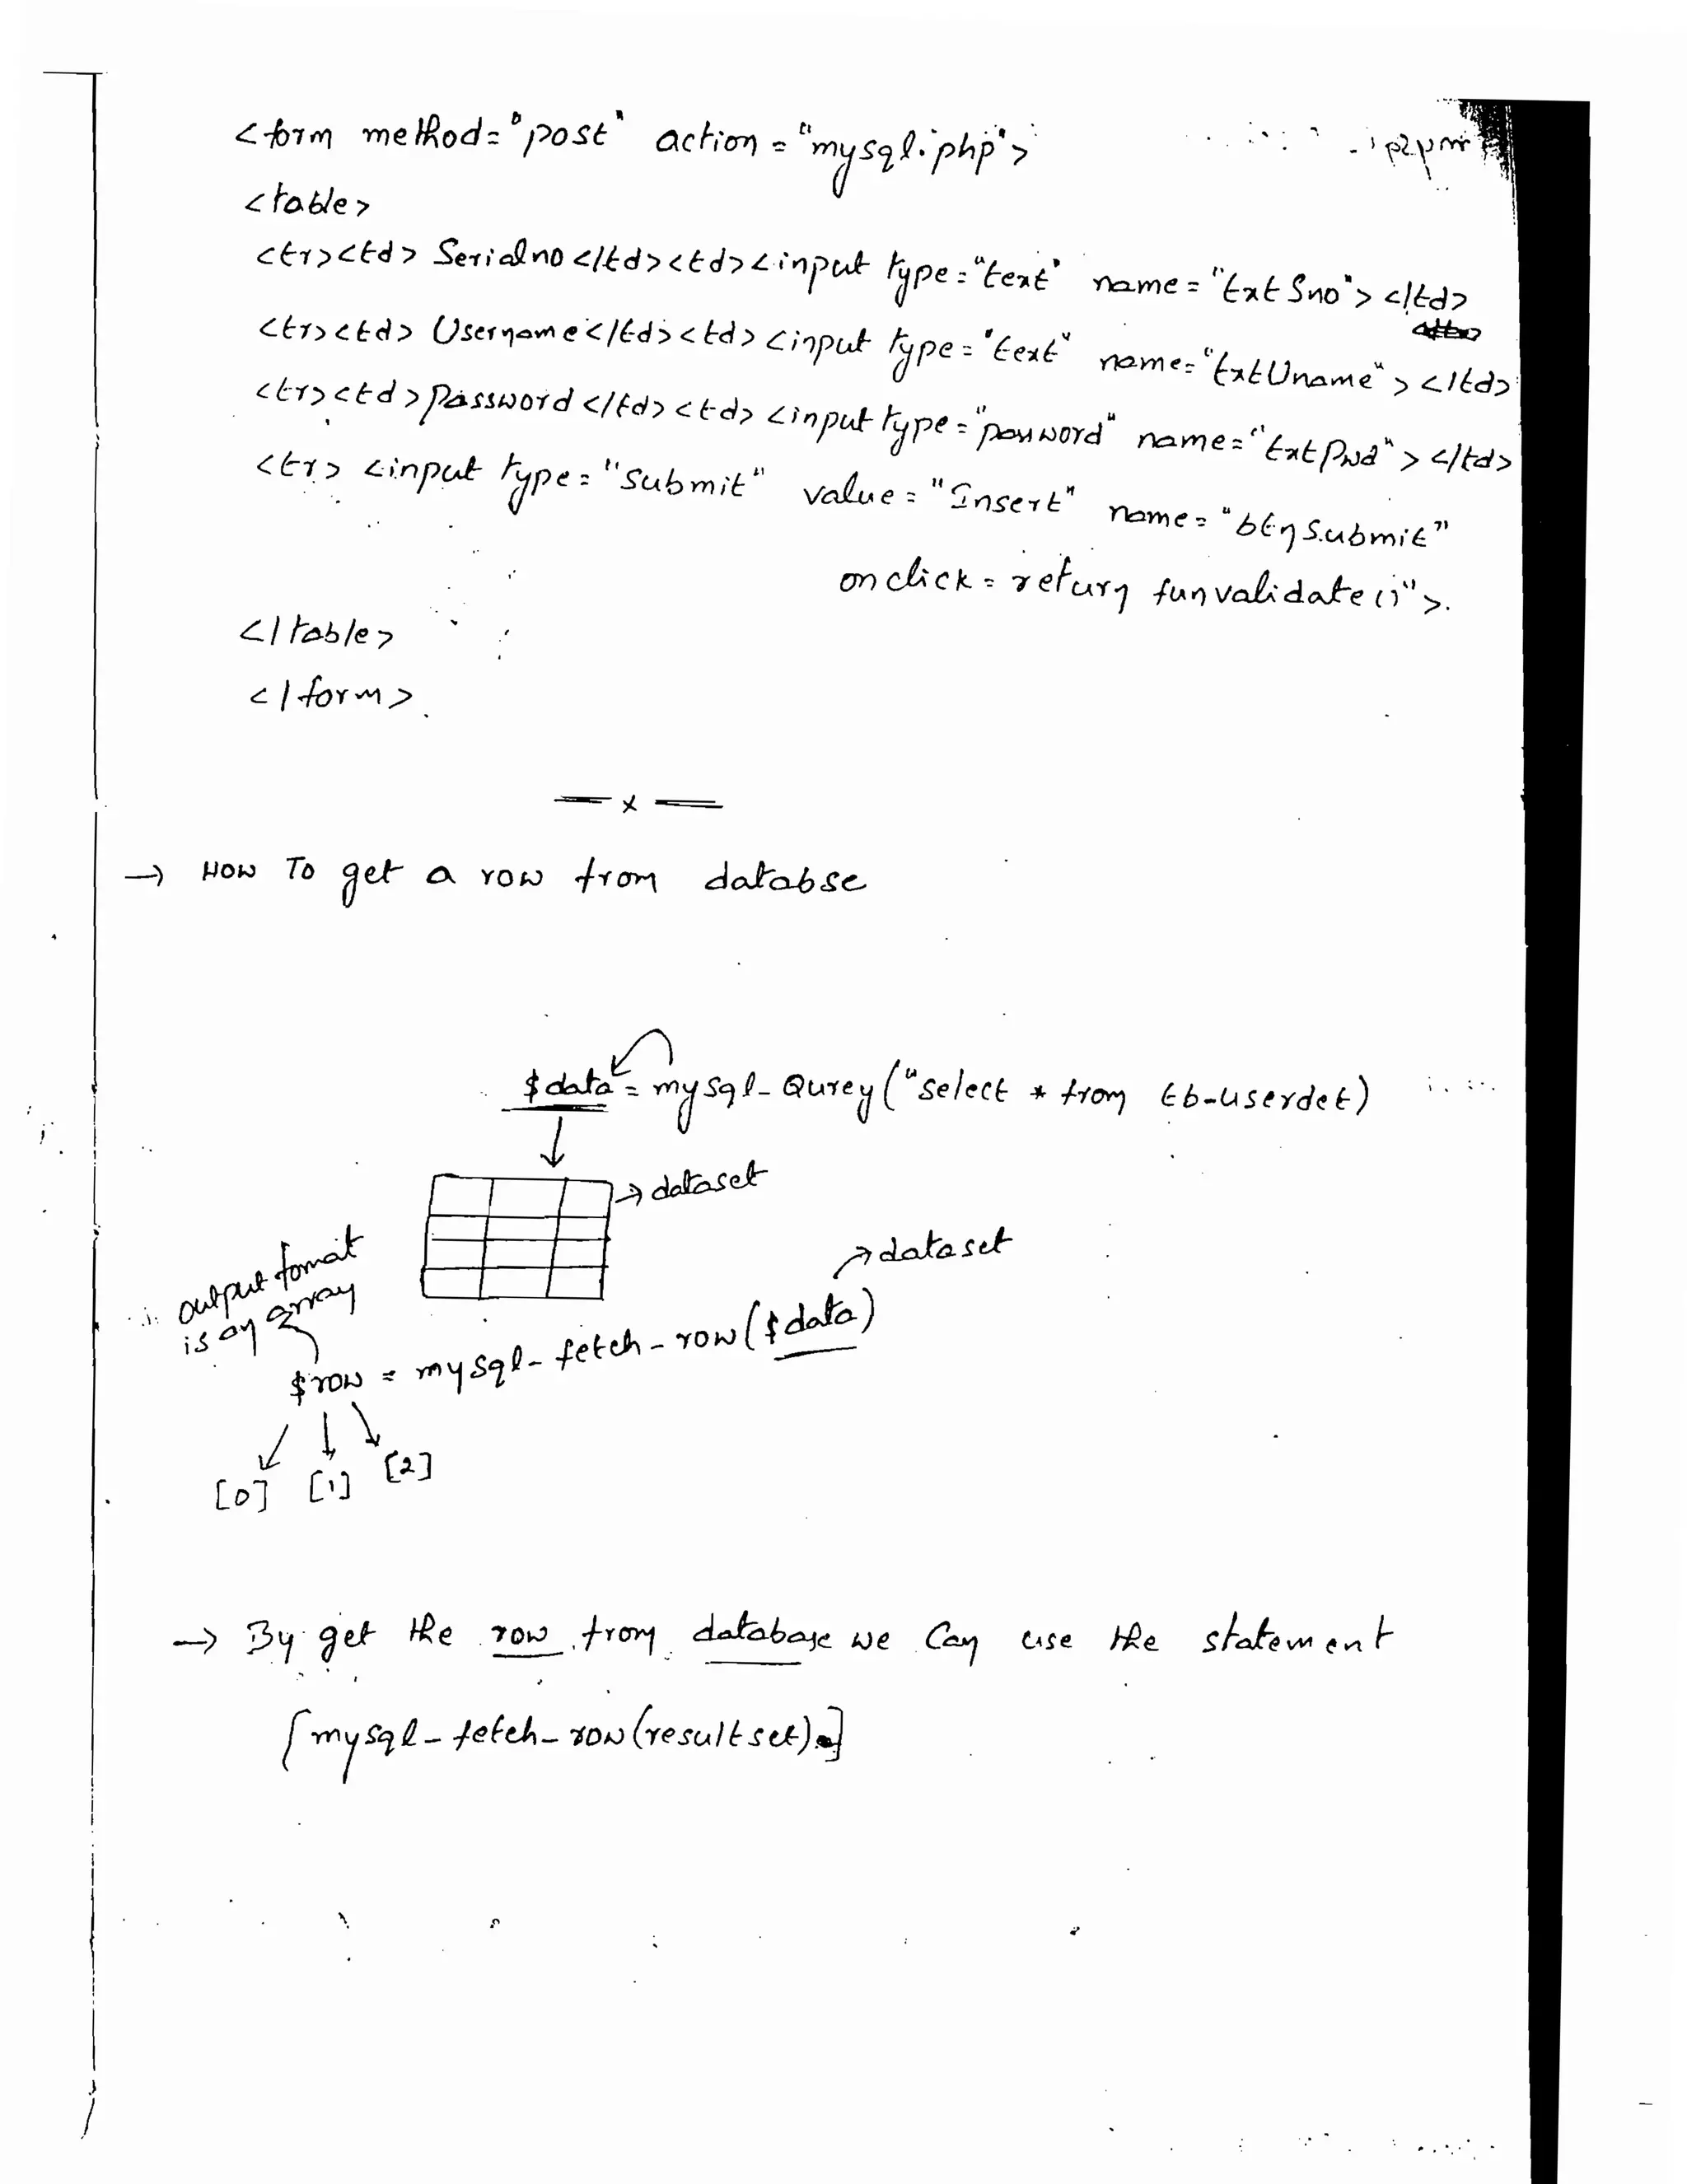 <form method="post" action="mysql.php">
<table>
<tr><td> Serialno </td><td><input type="text" name="txtSno"> </td>
<tr><td> Username</td><td> <input type="text" name="txtUname"> </td>
<tr><td>Password </td><td> <input type="password" name="txtPwd"> </td>
<tr> <input type="Submit" value="Insert" name="btnSubmit"
onclick=return funvalidate()">.
</table>
</form>.
= x =
→ HOW TO get a row from databse
$data = mysql-Qurey("select * from tb-userdet)
→ dataset
→ dataset
output fomat
is an array
$row = mysql-fetch-row($data)
[0] [1] [2]
→ By get the row from database we can use the statement
[mysql-fetch-row(resultset).]